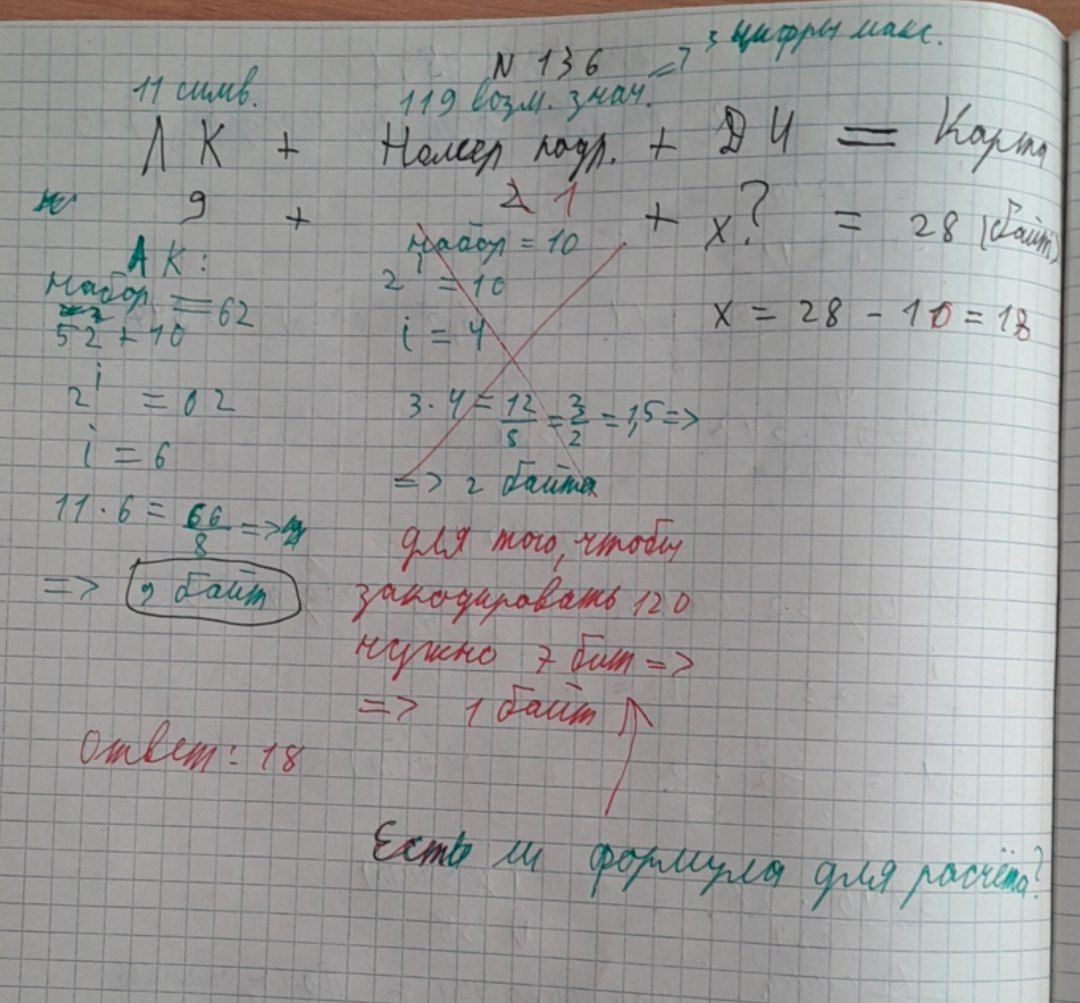 3 цифры макс.
N 136
11 симв.
119 возм. знач. =>
ЛК + Номер подр. + ДИ = Карта
9 + 2 1 + x? = 28 (байт)
ЛК:
набор = 62
52 + 10
2^i = 62
i = 6
11 · 6 = 66/8 =>
=> 9 байт
набор = 10
2^i = 10
i = 4
3 · 4 = 12/8 = 3/2 = 1,5 =>
=> 2 байта
для того, чтобы
закодировать 120
нужно 7 бит =>
=> 1 байт
x = 28 - 10 = 18
Ответ: 18
Есть ли формула для расчёта?